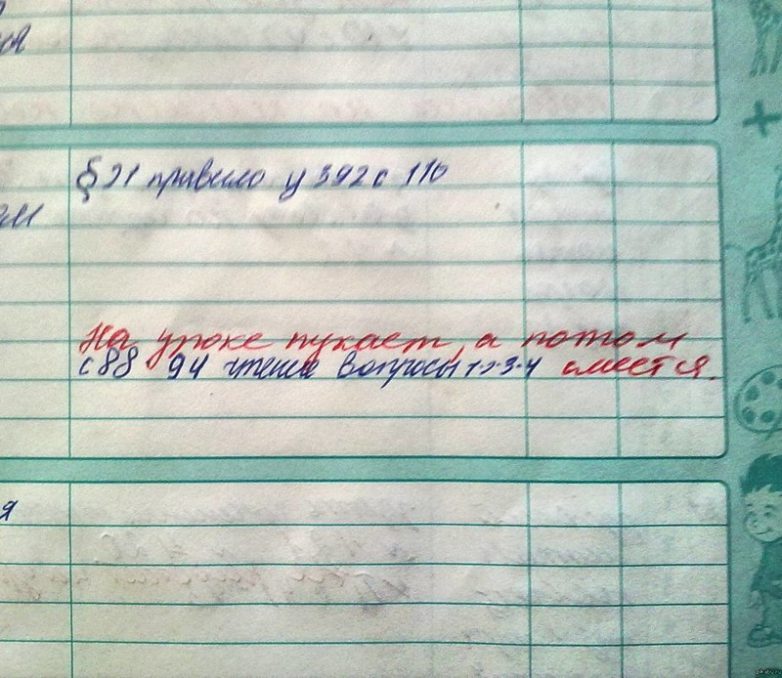 я
§ 21 правило у 392 с 110
ем
На уроке пукает, а потом
с 88 94 чтение вопросы 1-2-3-4 смеется.
я